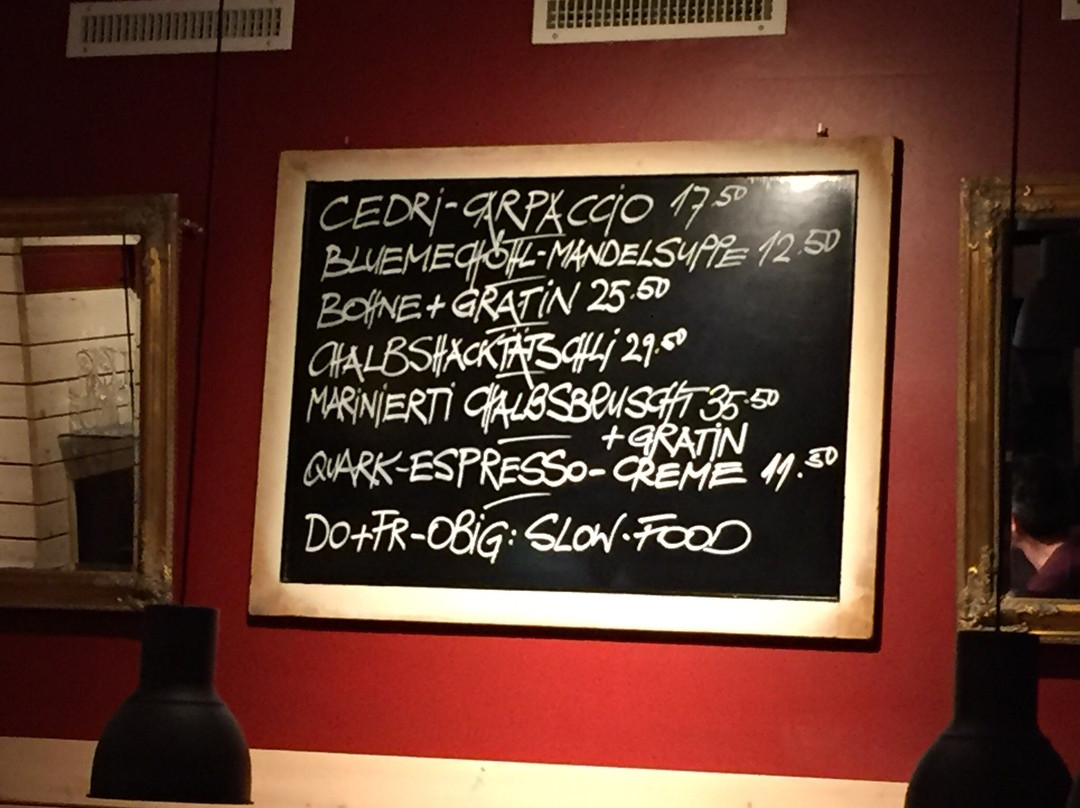 CEDRi-CARPACCiO 17.50
BLUEMECHÖHL-MANDELSUPPE 12.50
BOHNE + GRATiN 25.50
CHALBSHACKTÄTSCHLi 29.50
MARiNiERTi CHALBSBRUSCHT 35.50
+ GRATiN
QUARK-ESPRESSO-CREME 11.50
DO+FR-OBiG: SLOW-FOOD